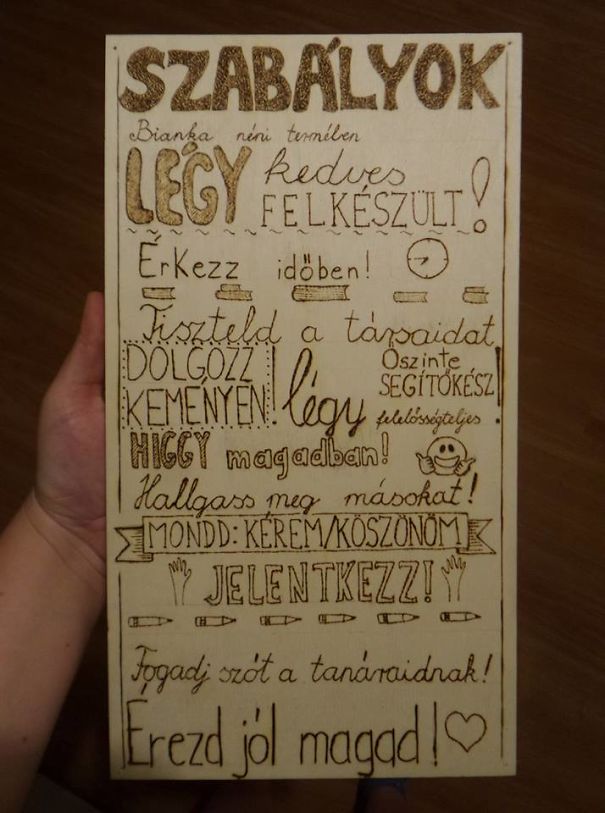 SZABÁLYOK
Bianka néni termében
LÉGY kedves
FELKÉSZÜLT!
Érkezz időben!
Tiszteld a társaidat
DOLGOZZ
KEMÉNYEN!
légy
Őszinte
SEGÍTŐKÉSZ
felelősségteljes!
HIGGY magadban!
Hallgass meg másokat!
MONDD: KÉREM/KÖSZÖNÖM
JELENTKEZZ!
Fogadj szót a tanáraidnak!
Érezd jól magad!